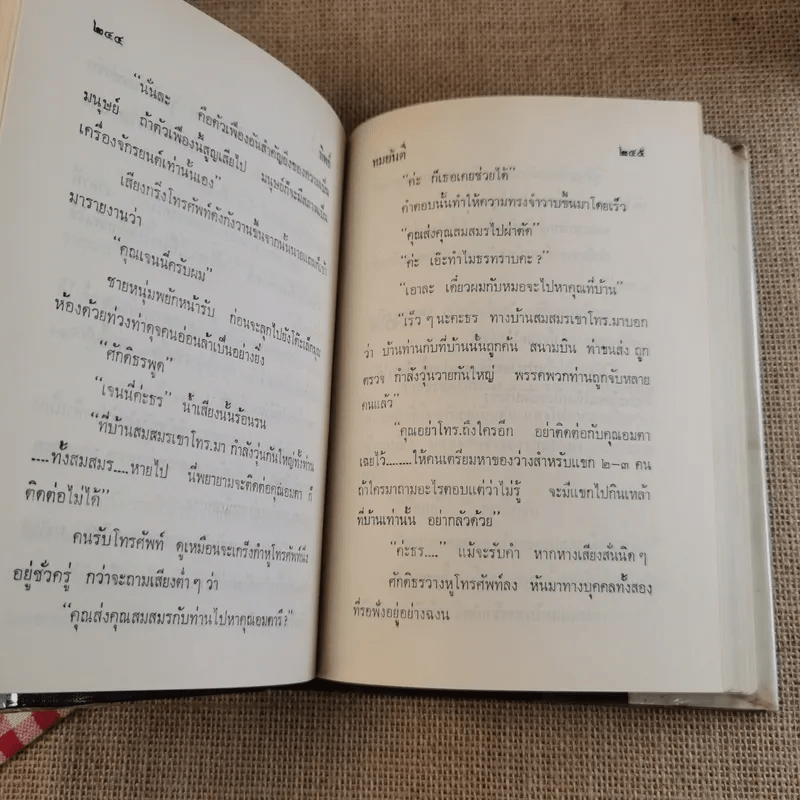 ๒๔๔
ทิพย์
“นั่นละ คือตัวเฟืองอันสำคัญยิ่งของความเป็น
มนุษย์ ถ้าตัวเฟืองนี้สูญเสียไป มนุษย์ก็จะมีสภาพเป็น
เครื่องจักรยนต์เท่านั้นเอง”
เสียงกริ่งโทรศัพท์ดังกังวานขึ้นจากนั้น
มารายงานว่า
“คุณเจนนี่ครับผม”
ชายหนุ่มพยักหน้ารับ ก่อนจะลุกไปยังโต๊ะเล็กมุม
ห้องด้วยท่วงท่าดุจคนอ่อนล้าเป็นอย่างยิ่ง
“ศักดิธรพูด”
“เจนนี่ค่ะธร” น้ำเสียงนั้นร้อนรน
“ที่บ้านสมสมรเขาโทร.มา กำลังวุ่นกันใหญ่ทั้งท่าน
....ทั้งสมสมร....หายไป นี่พยายามจะติดต่อคุณอมตา ก็
ติดต่อไม่ได้”
คนรับโทรศัพท์ ดูเหมือนจะเกร็งกำหูโทรศัพท์นิ่ง
อยู่ชั่วครู่ กว่าจะถามเสียงต่ำ ๆ ว่า
“คุณส่งคุณสมสมรกับท่านไปหาคุณอมตารึ?”
ทมยันตี
๒๔๕
“ค่ะ ก็เธอเคยช่วยได้”
คำตอบนั้นทำให้ความทรงจำวาบขึ้นมาโดยเร็ว
“คุณส่งคุณสมสมรไปผ่าตัด”
“ค่ะ เอ๊ะทำไมธรทราบคะ?”
“เอาละ เดี๋ยวผมกับหมอจะไปหาคุณที่บ้าน”
“เร็ว ๆ นะคะธร ทางบ้านสมสมรเขาโทร.มาบอก
ว่า บ้านท่านกับที่บ้านนั้นถูกค้น สนามบิน ท่าขนส่ง ถูก
ตรวจ กำลังวุ่นวายกันใหญ่ พรรคพวกท่านถูกจับหลาย
คนแล้ว”
“คุณอย่าโทร.ถึงใครอีก อย่าติดต่อกับคุณอมตา
เฉยไว้........ให้คนเตรียมหาของว่างสำหรับแขก ๒-๓ คน
ถ้าใครมาถามอะไรตอบแต่ว่าไม่รู้ จะมีแขกไปกินเหล้า
ที่บ้านเท่านั้น อย่ากลัวด้วย”
“ค่ะธร....” แม้จะรับคำ หากหางเสียงสั่นนิด ๆ
ศักดิธรวางหูโทรศัพท์ลง หันมาทางบุคคลทั้งสอง
ที่รอฟังอยู่อย่างฉงน